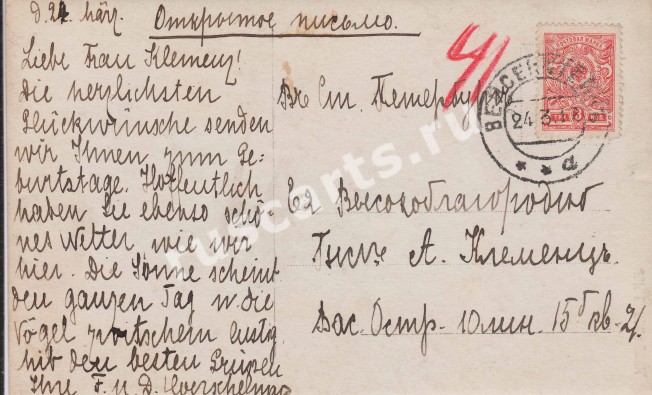 d. 24. März.
Liebe Frau Klemenz!
Die herzlichsten
Glückwünsche senden
wir Ihnen zum Ge-
burtstage. Hoffentlich
haben Sie ebenso schö-
nes Wetter, wie wir
hier. Die Sonne scheint
den ganzen Tag u. die
Vögel zwitschern lustig
Mit den besten Grüßen
Ihre F. u. D.
Открытое письмо.
Въ Ст. Петербургъ
Ея Высокоблагородію
А. Клеменцъ.
Вас. Остр. 10 лин. 15 б кв. 21.
24.3.13
ruscarts.ru